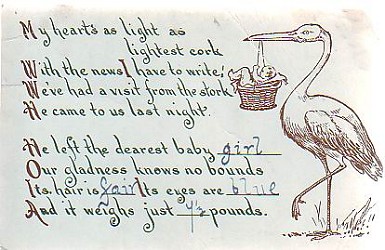 My heart's as light as
lightest cork
With the news I have to write!
We've had a visit from the stork
He came to us last night.
He left the dearest baby girl
Our gladness knows no bounds
Its hair is fair Its eyes are blue
And it weighs just 4½ pounds.